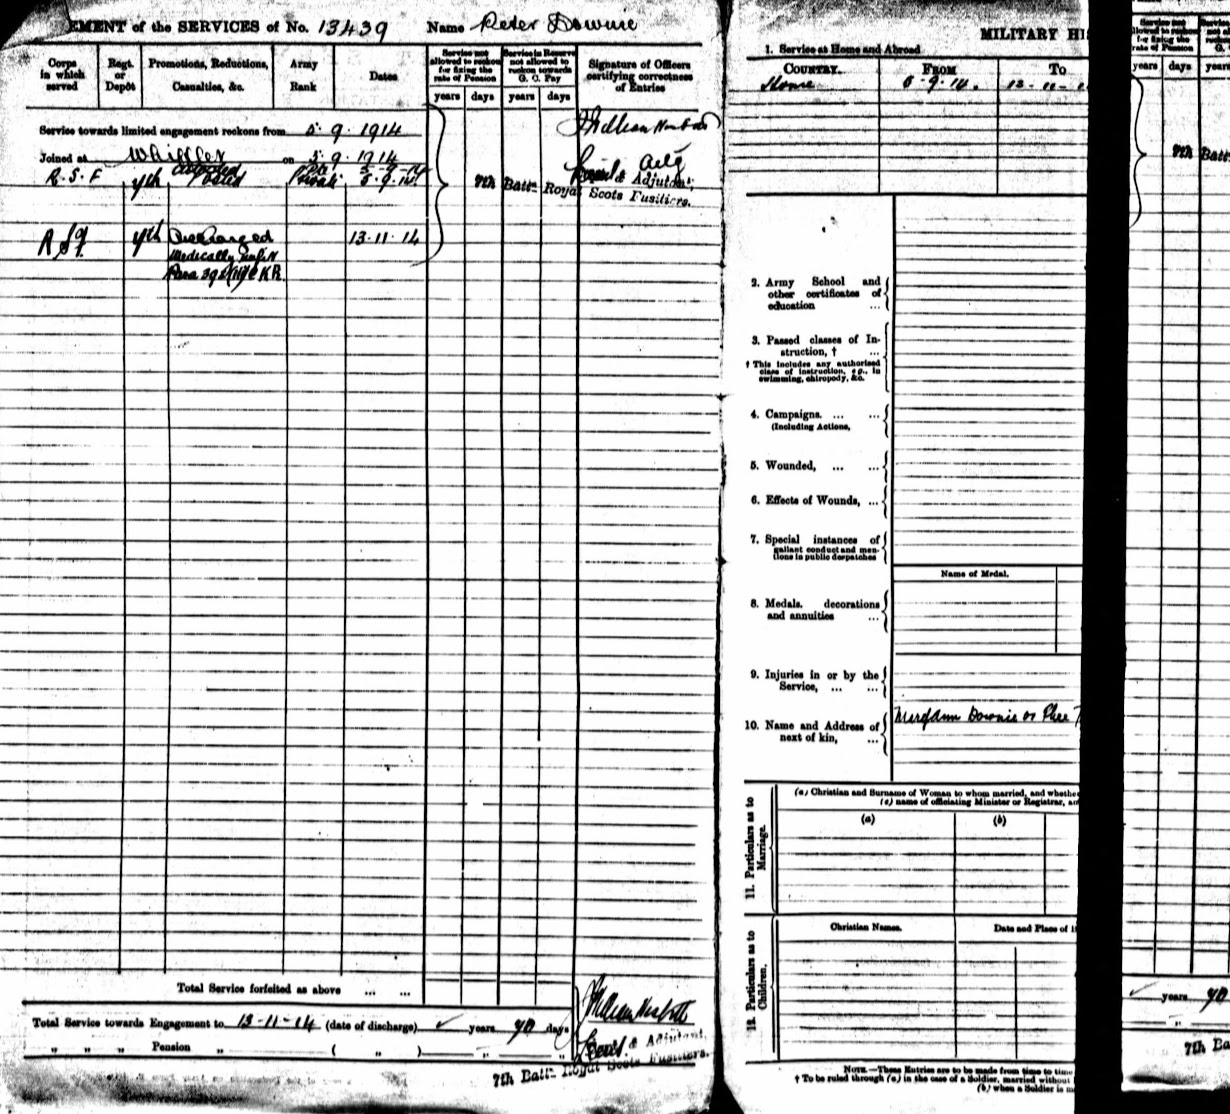 EMENT of the SERVICES of No. 13439 Name Peter Downie
Corps in which served
Regt. or Depôt
Promotions, Reductions, Casualties, &c.
Army Rank
Dates
Service not allowed to reckon for fixing the rate of Pension
years days
Service in Reserve not allowed to reckon towards G. C. Pay
years days
Signature of Officers certifying correctness of Entries
Service towards limited engagement reckons from 5.9.1914
Joined at on 5.9.1914
R.S.F 7th Posted Private 5.9.14
7th Batt. Royal Scots Fusiliers.
& Adjutant,
R.S.F. 7th Discharged 13-11-14
Medically unfit
Para 392 KR.
Total Service forfeited as above ... ...
Total Service towards Engagement to 13-11-14 (date of discharge) years 70 days
" " " Pension " ( " ) " "
& Adjutant,
7th Batt. Royal Scots Fusiliers.
MILITARY HI
1. Service at Home and Abroad
COUNTRY. FROM TO
Home 5-9-14. 13-11-1
2. Army School and
other certificates of
education ...
3. Passed classes of In-
struction, † ...
† This includes any authorised
class of instruction, e.g., in
swimming, chiropody, &c.
4. Campaigns. ... ...
(Including Actions,
5. Wounded, ... ...
6. Effects of Wounds, ...
7. Special instances of
gallant conduct and men-
tions in public despatches
Name of Medal.
8. Medals, decorations
and annuities ...
9. Injuries in or by the
Service, ... ...
10. Name and Address of
next of kin, ...
Downie or
11. Particulars as to Marriage.
(a) Christian and Surname of Woman to whom married, and whethe
(c) name of officiating Minister or Registrar, an
(a) (b)
12. Particulars as to Children.
Christian Names. Date and Place of
NOTE.—These Entries are to be made from time to time
† To be ruled through (a) in the case of a Soldier, married without
(b) when a Soldier is
years days
7th Batt
years 70
7th Ba